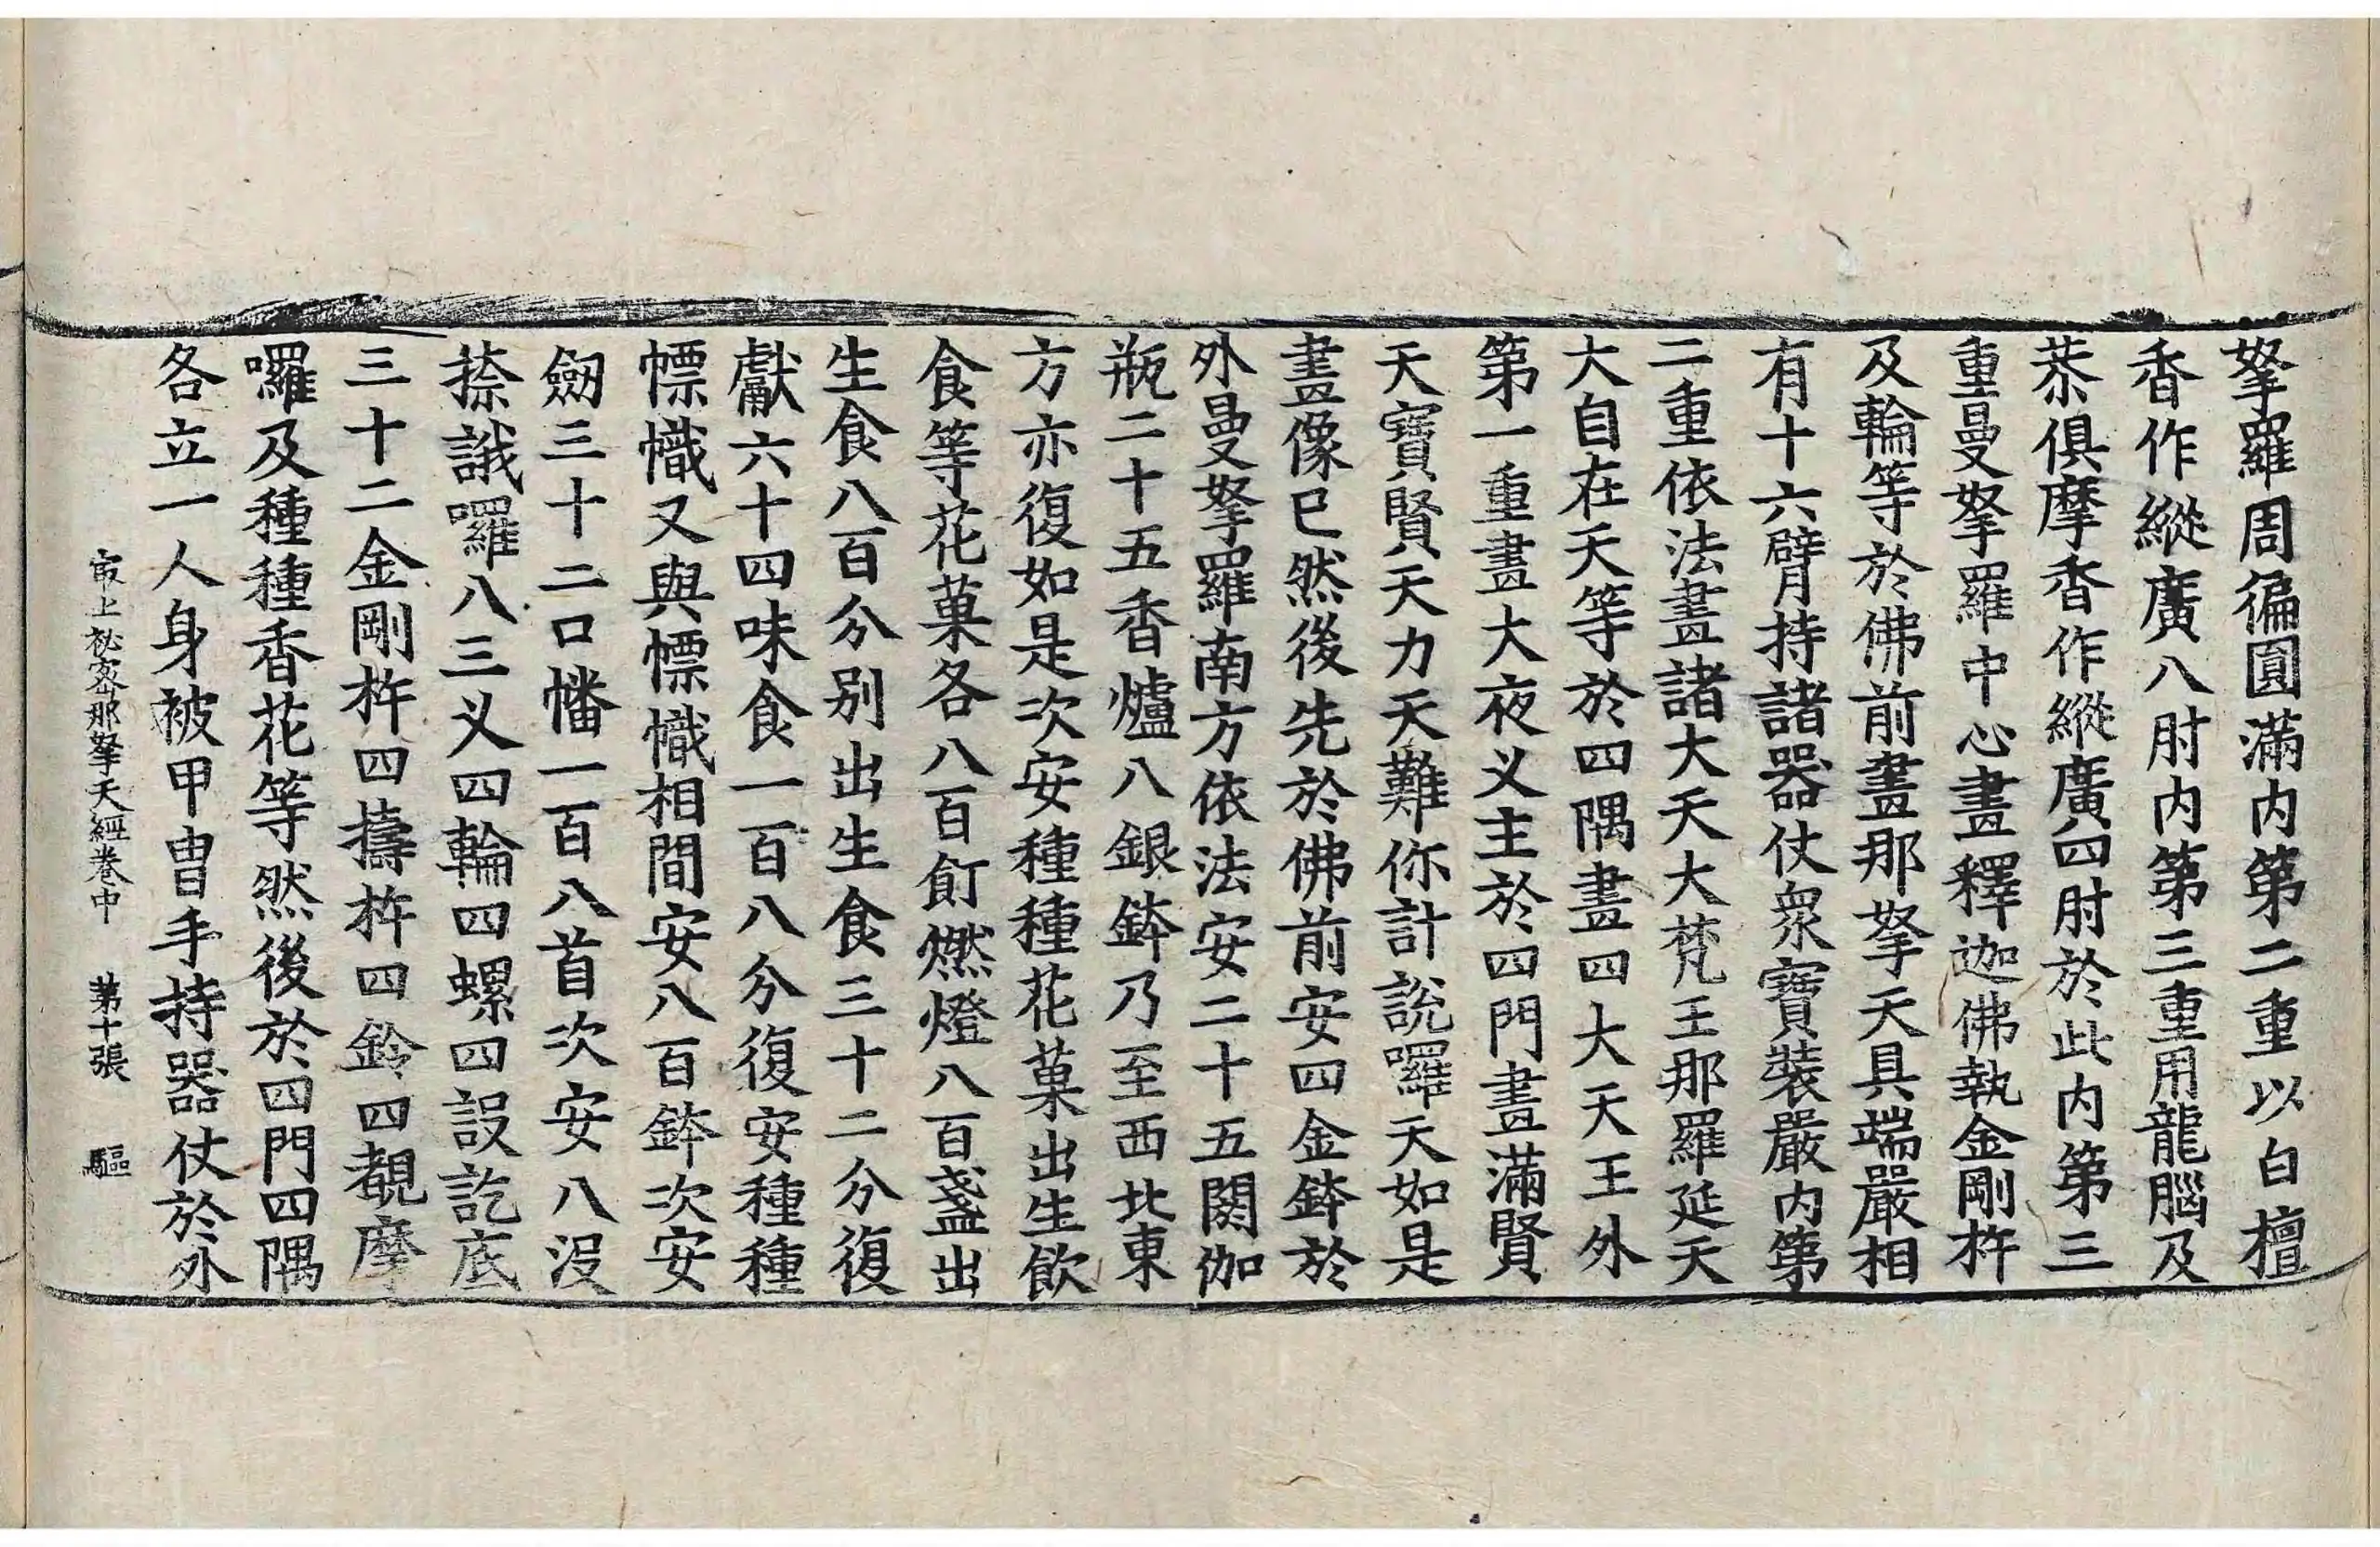 拏羅周徧圓滿内第二重以白檀
香作縱廣八肘内第三重用龍腦及
恭俱摩香作縱廣四肘於此内第三
重曼拏羅中心畫釋迦佛執金剛杵
及輪等於佛前畫那拏天具端嚴相
有十六臂持諸器仗衆寶裝嚴内第
二重依法畫諸大天大梵王那羅延天
大自在天等於四隅畫四大天王外
第一重畫大夜义主於四門畫滿賢
天寶賢天力天難你計說囉天如是
畫像已然後先於佛前安四金鉢於
外曼拏羅南方依法安二十五閼伽
瓶二十五香爐八銀鉢乃至西北東
方亦復如是次安種種花菓出生飲
食等花菓各八百飣燃燈八百盞出
生食八百分别出生食三十二分復
獻六十四味食一百八分復安種種
幖幟又與幖幟相間安八百鉢次安
劔三十二口幡一百八首次安八没
捺誐囉八三义四輪四螺四設訖底
三十二金剛杵四擣杵四鈴四覩摩
囉及種種香花等然後於四門四隅
各立一人身被甲胄手持器仗於外
最上祕密那拏天經卷中 第十張 驅